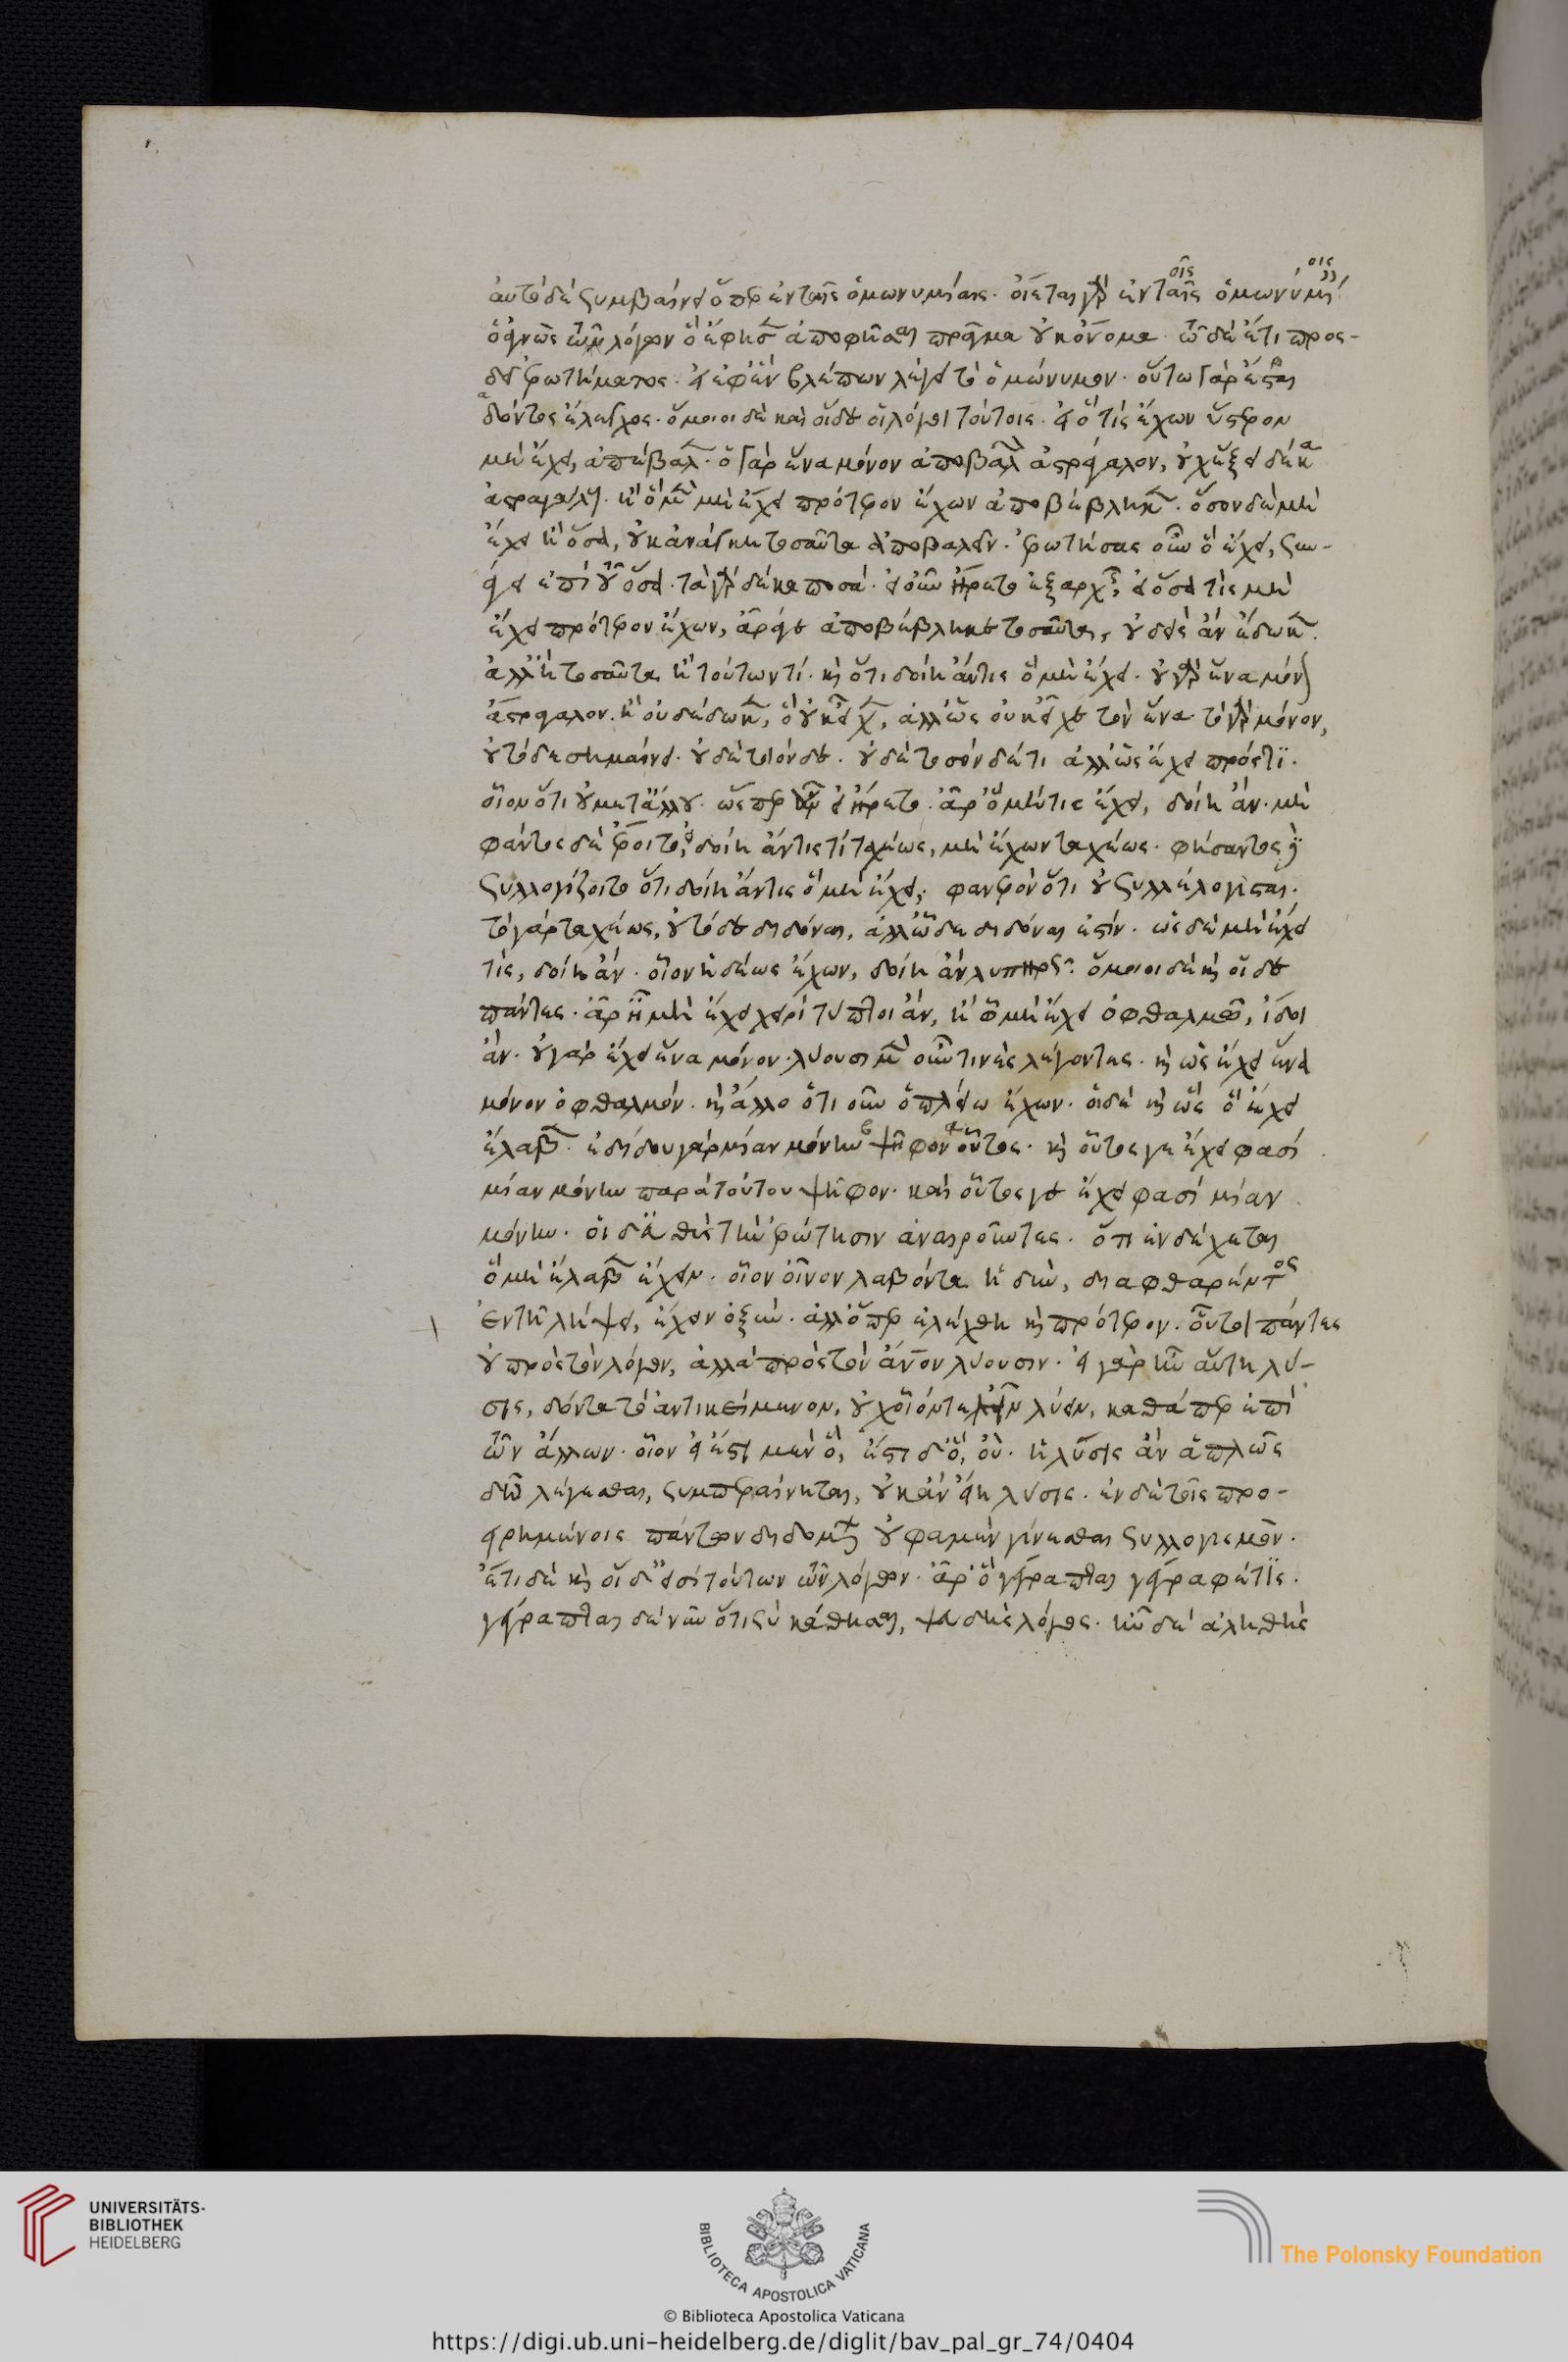 αυτὸ δὲ συμβαίνει ὅπερ ἐν ταῖς ὁμωνυμίαις. οἴεται γὰρ ἐν ταῖς οῖς ὁμωνύμοις
ὁ ἀγνὼς τῶν λόγων ὃ ἔφησεν ἀποφῆσαι πρᾶγμα οὐκ ὄνομα. τῶν δὲ ἔτι προσ-
δεῖ ἐρωτήματος. εἰ ἐφ' ἓν βλέπων λέγει τὸ ὁμώνυμον. οὕτω γὰρ ἔσται
δόντος ἔλεγχος. ὅμοιοι δὲ καὶ οἵδε οἱ λόγοι τούτοις. εἰ ὅ τις ἔχων ὕστερον
μὴ ἔχει, ἀπέβαλεν. ὁ γὰρ ἕνα μόνον ἀποβαλὼν ἀστράγαλον, οὐχ ἕξει δέκα
ἀστραγάλους. ἢ ὃ μὲν μὴ ἔχει πρότερον ἔχων ἀποβέβληκεν. ὅσον δὲ μὴ
ἔχει ἢ ὅσα, οὐκ ἀνάγκη τοσαῦτα ἀποβαλεῖν. ἐρωτήσας οὖν ὃ ἔχει, συν-
άγει ἐπὶ τοῦ ὅσα. τὰ γὰρ δέκα ποσά. εἰ οὖν ἤρετο ἐξαρχῆς, εἰ ὅσα τὶς μὴ
ἔχει πρότερον ἔχων, ἆράγε ἀποβέβληκε τοσαῦτα, οὐδεὶς ἂν ἔδωκεν.
ἀλλ' ἢ τοσαῦτα ἢ τούτων τί. καὶ ὅτι δοίη ἄν τις ὃ μὴ ἔχει. οὐ γὰρ ἕνα μόνον
ἀστράγαλον. ἢ οὐ δέδωκεν, ὃ οὐκ εἶχεν, ἀλλ' ὡς οὐκ εἶχε τὸν ἕνα· τὸ γὰρ μόνον,
οὐ τόδε σημαίνει. οὐδὲ τοιόνδε. οὐδὲ τοσόνδέ τι ἀλλ' ὡς ἔχει πρός τι.
οἷον ὅτι οὐ μετ' ἄλλου. ὥσπερ οὖν εἰ ἤρετο. ἆρ' ὃ μή τις ἔχει, δοίη ἄν. μὴ
φάντος δὲ ἔροιτο, εἰ δοίη ἄν τις τὶ ταχέως, μὴ ἔχων ταχέως. φήσαντος δὲ
συλλογίζοιτο ὅτι δοίη ἄν τις ὃ μὴ ἔχει, φανερὸν ὅτι οὐ συλλελόγισται.
τὸ γὰρ ταχέως, οὐ τόδε διδόναι, ἀλλ' ὧδε διδόναι ἐστίν. ὡς δὲ μὴ ἔχει
τὶς, δοίη ἄν. οἷον ἡδέως ἔχων, δοίη ἂν λυπηρῶς. ὅμοιοι δὲ καὶ οἵδε
πάντες. ἆρ' ᾗ μὴ ἔχει χειρὶ τύπτοι ἄν, ἢ ᾧ μὴ ἔχει ὀφθαλμῷ, ἴδοι
ἄν. οὐ γὰρ ἔχει ἕνα μόνον. λύουσι μὲν οὖν τινὲς λέγοντες. καὶ ὡς ἔχει ἕνα
μόνον ὀφθαλμόν. καὶ ἄλλο ὅτι οὖν ὁ πλείω ἔχων. οἱ δὲ καὶ ὡς ὃ ἔχει
ἔλαβεν. ἐδίδου γὰρ μίαν μόνην ψῆφον οὗτος. καὶ οὗτος γε ἔχει φασὶ
μίαν μόνην παρὰ τούτου ψῆφον. καὶ οὗτος γε ἔχει φασὶ μίαν
μόνην. οἱ δ' εὐθὺς τὴν ἐρώτησιν ἀναιροῦντες. ὅτι ἐνδέχεται
ὃ μὴ ἔλαβεν ἔχειν. οἷον οἶνον λαβόντα ἡδὺν, διαφθαρέντος
ἐν τῇ λήψει, ἔχειν ὀξύν. ἀλλ' ὅπερ ἐλέχθη καὶ πρότερον. οὗτοι πάντες
οὐ πρὸς τὸν λόγον, ἀλλὰ πρὸς τὸν ἄνον λύουσιν. εἰ γὰρ ἦν αὕτη λύ-
σις, δόντα τὸ ἀντικείμενον, οὐχ οἷόντε λύειν, καθάπερ ἐπὶ
τῶν ἄλλων. οἷον εἰ ἔστι μὲν ὃ, ἔστι δ' ὃ, οὐ. ἡ λῦσις ἂν ἁπλῶς
δῷ λέγεσθαι, συμπεραίνηται, οὐκ ἂν εἴη λύσις. ἐν δὲ τοῖς προ-
ειρημένοις πάντων διδομένων οὐ φαμὲν γίνεσθαι συλλογισμόν.
ἔτι δὲ καὶ οἵδ' εἰσὶ τούτων τῶν λόγων. ἆρ' ὃ γέγραπται γέγραφέ τις.
γέγραπται δὲ νῦν ὅτι σὺ κάθησαι, ψευδὴς λόγος. ἦν δὲ ἀληθὴς
UNIVERSITÄTS-
BIBLIOTHEK
HEIDELBERG
BIBLIOTECA APOSTOLICA VATICANA
The Polonsky Foundation
© Biblioteca Apostolica Vaticana
https://digi.ub.uni-heidelberg.de/diglit/bav_pal_gr_74/0404